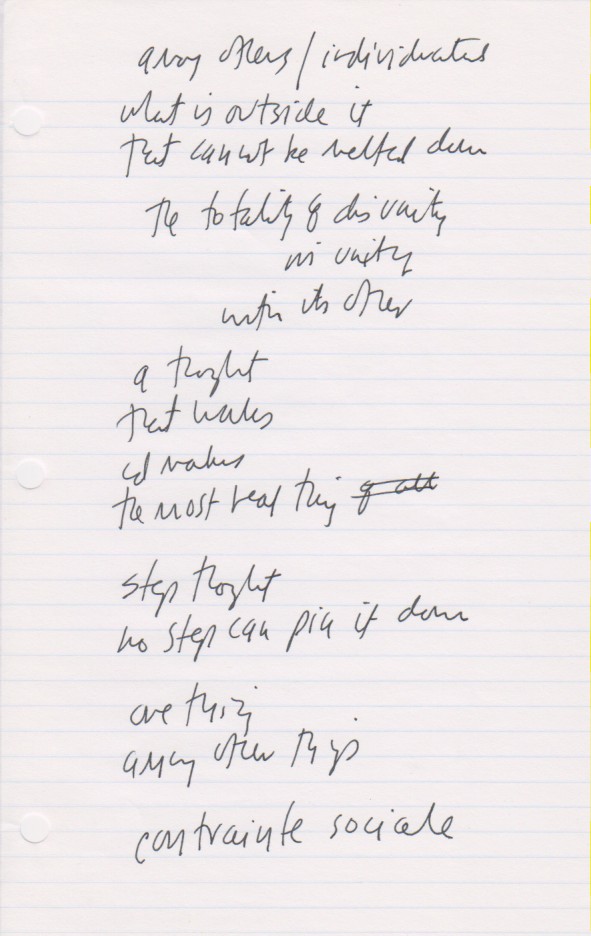 among others / individuated
what is outside it
that cannot be melted down
the totality of disunity
in unity
with its other
a thought
that walks
and makes
the most real thing of all
step thought
no step can pin it down
one thing
among other things
contrainte sociale